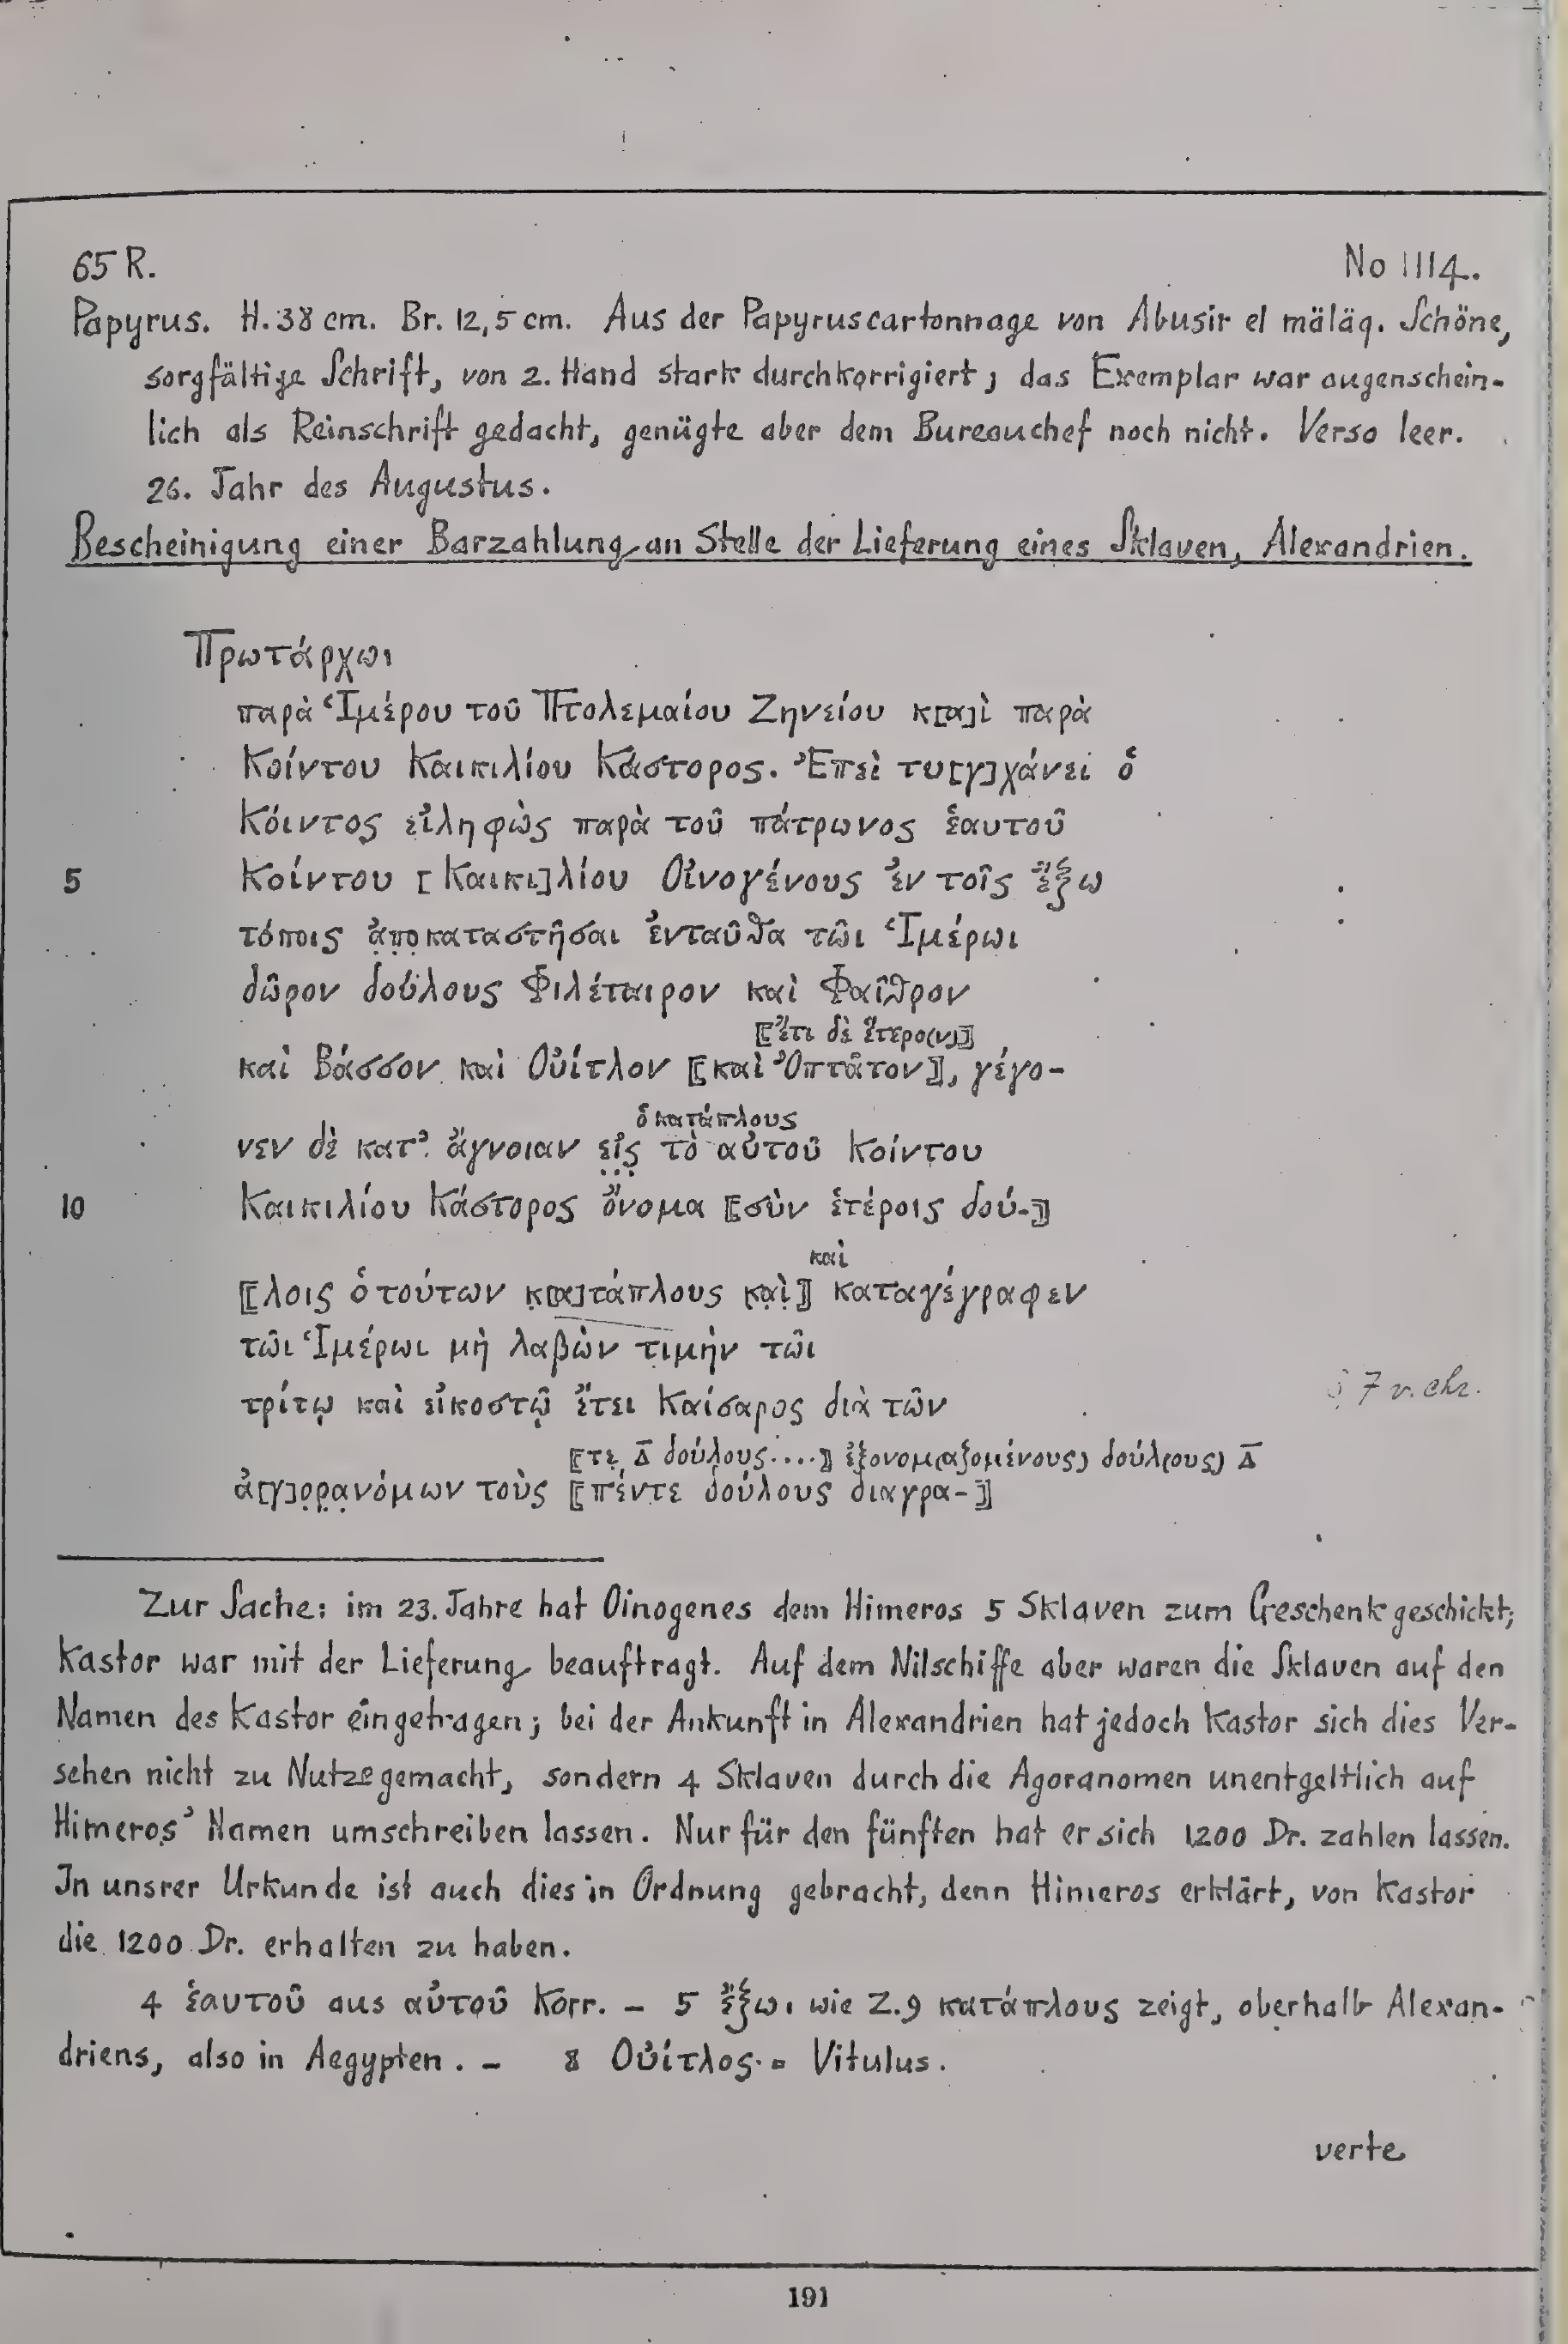 65 R. No 1114.
Papyrus. H. 38 cm. Br. 12,5 cm. Aus der Papyruscartonnage von Abusir el mäläq. Schöne,
sorgfältige Schrift, von 2. Hand stark durchkorrigiert; das Exemplar war augenschein-
lich als Reinschrift gedacht, genügte aber dem Bureauchef noch nicht. Verso leer.
26. Jahr des Augustus.
Bescheinigung einer Barzahlung an Stelle der Lieferung eines Sklaven, Alexandrien.
Πρωτάρχωι
παρὰ Ἱμέρου τοῦ Πτολεμαίου Ζηνείου κ[α]ὶ παρὰ
Κοίντου Καικιλίου Κάστορος. Ἐπεὶ τυ[γ]χάνει ὁ
Κόιντος εἰληφὼς παρὰ τοῦ πάτρωνος ἑαυτοῦ
5 Κοίντου [Καικι]λίου Οἰνογένους ἐν τοῖς ἔξω
τόποις ἀ̣π̣ο̣καταστῆσαι ἐνταῦθα τῶι Ἱμέρωι
δῶρον δούλους Φιλέταιρον καὶ Φαῖθρον
⟦ἔτι δὲ ἕτερο(ν)⟧
καὶ Βάσσον καὶ Οὐίτλον ⟦καὶ Ὀπτᾶτον⟧, γέγο-
ὁ κατάπλους
νεν δὲ κατ' ἄγνοιαν ε̣ἰ̣ς̣ τὸ αὐτοῦ Κοίντου
10 Καικιλίου Κάστορος ὄνομα ⟦σὺν ἑτέροις δού-⟧
καὶ
⟦λοις ὁ τούτων κ̣[α]τάπλους κ̣α̣ὶ̣⟧ καταγέγραφεν
τῶι Ἱμέρωι μὴ λαβὼν τιμὴν τῶι
τρίτῳ καὶ εἰκοστῷ ἔτει Καίσαρος διὰ τῶν
7 v. chr.
⟦τε̣ δ̅ δούλους....⟧ ἐξονομ(αζομένους) δούλ(ους) δ̅
ἀ[γ]ο̣ρ̣α̣νόμων τοὺς ⟦πέντε δούλους διαγρα-⟧
Zur Sache: im 23. Jahre hat Oinogenes dem Himeros 5 Sklaven zum Geschenk geschickt;
Kastor war mit der Lieferung beauftragt. Auf dem Nilschiffe aber waren die Sklaven auf den
Namen des Kastor eingetragen; bei der Ankunft in Alexandrien hat jedoch Kastor sich dies Ver-
sehen nicht zu Nutze gemacht, sondern 4 Sklaven durch die Agoranomen unentgeltlich auf
Himeros' Namen umschreiben lassen. Nur für den fünften hat er sich 1200 Dr. zahlen lassen.
In unsrer Urkunde ist auch dies in Ordnung gebracht, denn Himeros erklärt, von Kastor
die 1200 Dr. erhalten zu haben.
4 ἑαυτοῦ aus αὐτοῦ Korr. – 5 ἔξω: wie Z. 9 κατάπλους zeigt, oberhalb Alexan-
driens, also in Aegypten. – 8 Οὐίτλος = Vitulus.
verte
191